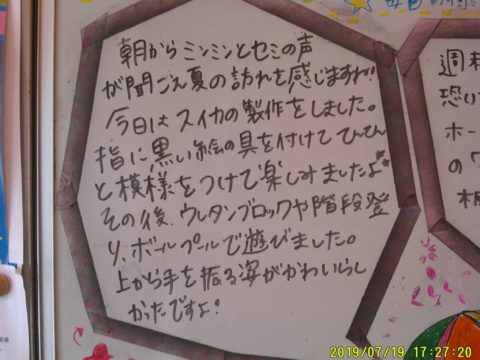 毎日の
朝からミンミンとセミの声
が聞こえ夏の訪れを感じますね!
今日はスイカの製作をしました。
指に黒い絵の具を付けててんてん
と模様をつけて楽しみましたよ
その後、ウレタンブロックや階段登
り、ボールプールで遊びました。
上から手を振る姿がかわいらし
かったですよ!
週
恐い
ホー
のワ
2019/07/19 17:27:20